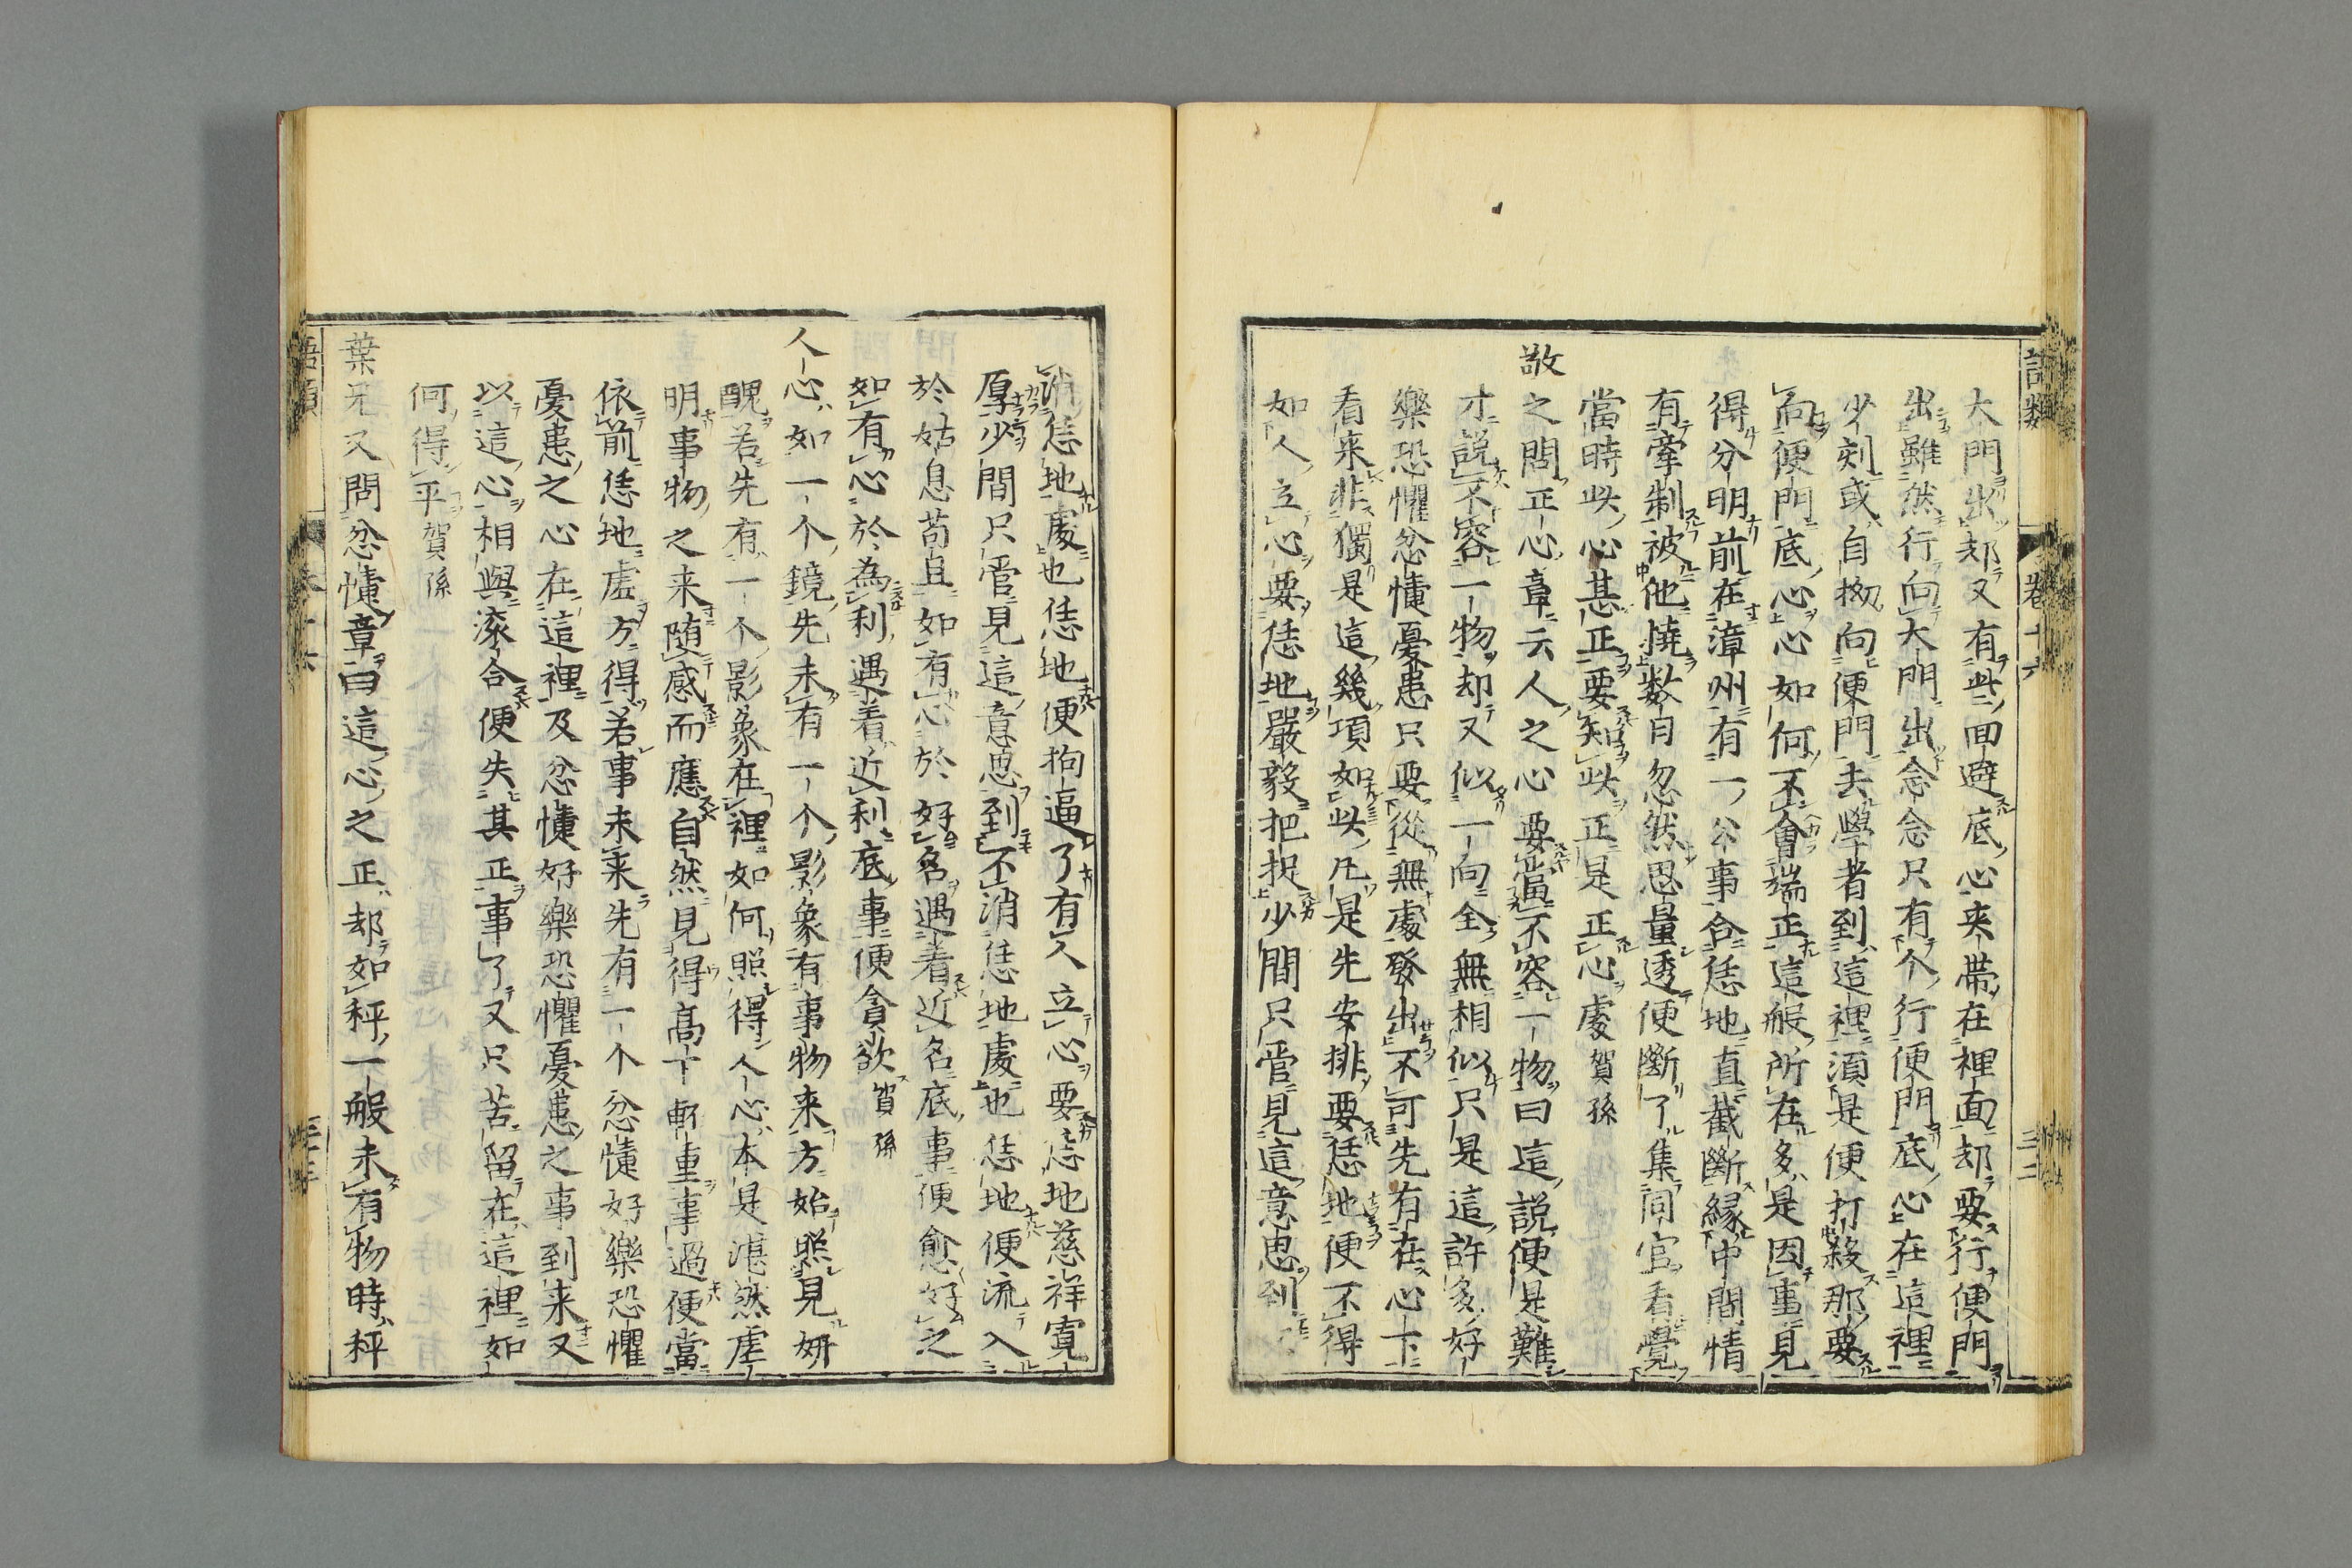 語類　卷十六　三十二
大門出却又有些囬避底心夾帶在裡面却要行便門
出雖然行向大門出念念只有个行便門底心在這裡
少刻或自拗向便門去學者到這裡湏是便打殺那要
向便門底心心如何不會端正這般所在多是因事見
得分明前在漳州有一公事合恁地直截斷縁中間情
有牽制被他撓数日忽然思量透便斷了集同官看覺
當時此心甚正要知此正是正心處賀孫
敬之問正心章云人之心要當不容一物曰這說便是難
才說不容一物却又似一向全無相似只是這許多好
樂恐懼忿懥憂患只要從無處發出不可先有在心下
看来非獨是這幾項如此凡是先安排要恁地便不得
如人立心要恁地嚴毅把捉少間只管見這意思到不
消恁地處也恁地便拘逼了有人立心要恁地慈祥寬
厚少間只管見這意思到不消恁地處也恁地便流入
於姑息苟且如有心於好名遇着近名底事便愈好之
如有心於為利遇着近利底事便貪欲賀孫
人心如一个鏡先未有一个影象有事物来方始照見妍
醜若先有一个影象在裡如何照得人心本是湛然虚
明事物之来随感而應自然見得高下輕重事過便當
依前恁地虚方得若事未来先有一个忿懥好樂恐懼
憂患之心在這裡及忿懥好樂恐懼憂患之事到来又
以這心相與滚合便失其正事了又只苦留在這裡如
何得平賀孫
葉兄又問忿懥章曰這心之正却如秤一般未有物時秤
語類　卷十六　三十三